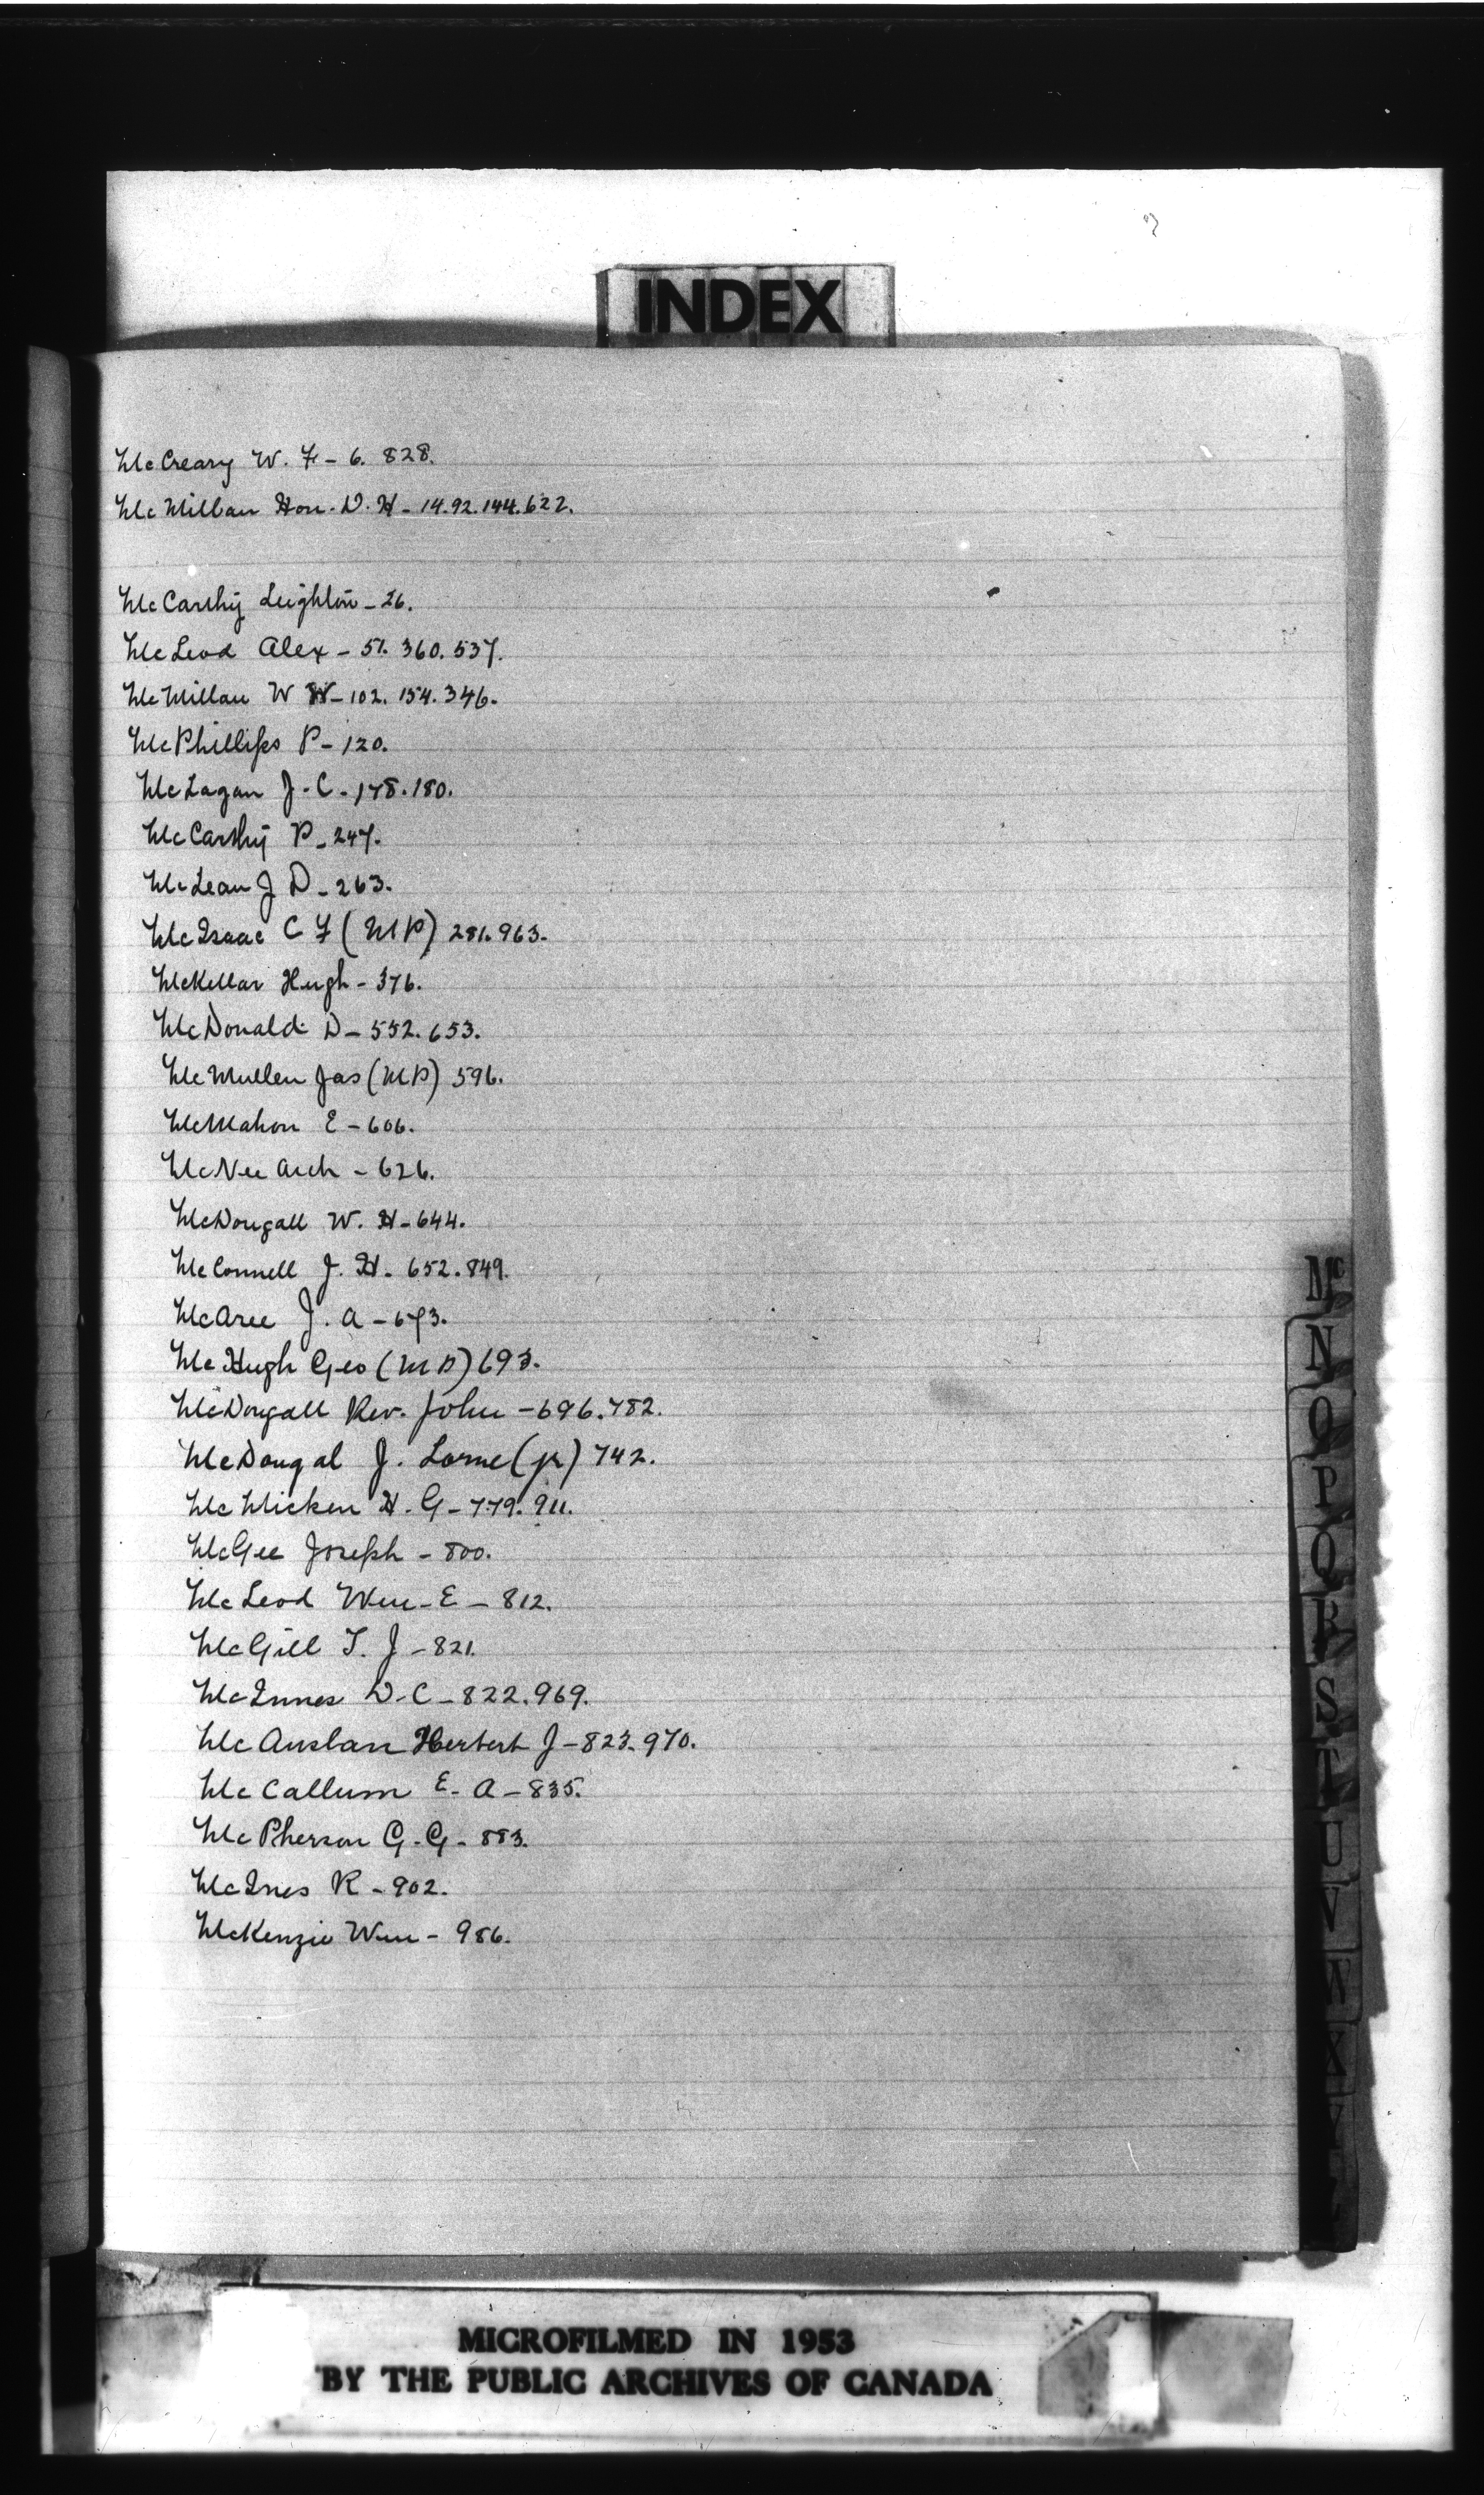 INDEX
McCreary W. F - 6. 828.
McMillan Hon. D. H - 14. 92. 144. 622.
McCarthy Leighton - 26.
McLeod Alex - 51. 360. 537.
McMillan W W - 102. 154. 346.
McPhillips P - 120.
McLagan J. C. - 178. 180.
McCarthy P - 247.
McLean J D - 263.
McIsaac C F (MP) 281. 963.
McKellar Hugh - 376.
McDonald D - 552. 653.
McMullen Jas (MP) 596.
McMahon E - 606.
McNee Arch - 626.
McDougall W. H - 644.
McConnell J. H. 652. 849.
McAree J. A - 673.
McHugh Geo (MP) 693.
McDougall Rev. John - 696. 782.
McDougal J. Lorne (jr) 742.
McMicken H. G - 779. 911.
McGee Joseph - 800.
McLeod Wm - E - 812.
McGill T. J - 821.
McInnes D. C - 822. 969.
McAuslan Herbert J - 823. 970.
McCallum E. A - 835.
McPherson G. G - 883.
McInes R - 902.
McKenzie Wm - 986.
Mc
N
O
P
Q
R
S
T
U
V
W
X
Y
MICROFILMED IN 1953
BY THE PUBLIC ARCHIVES OF CANADA